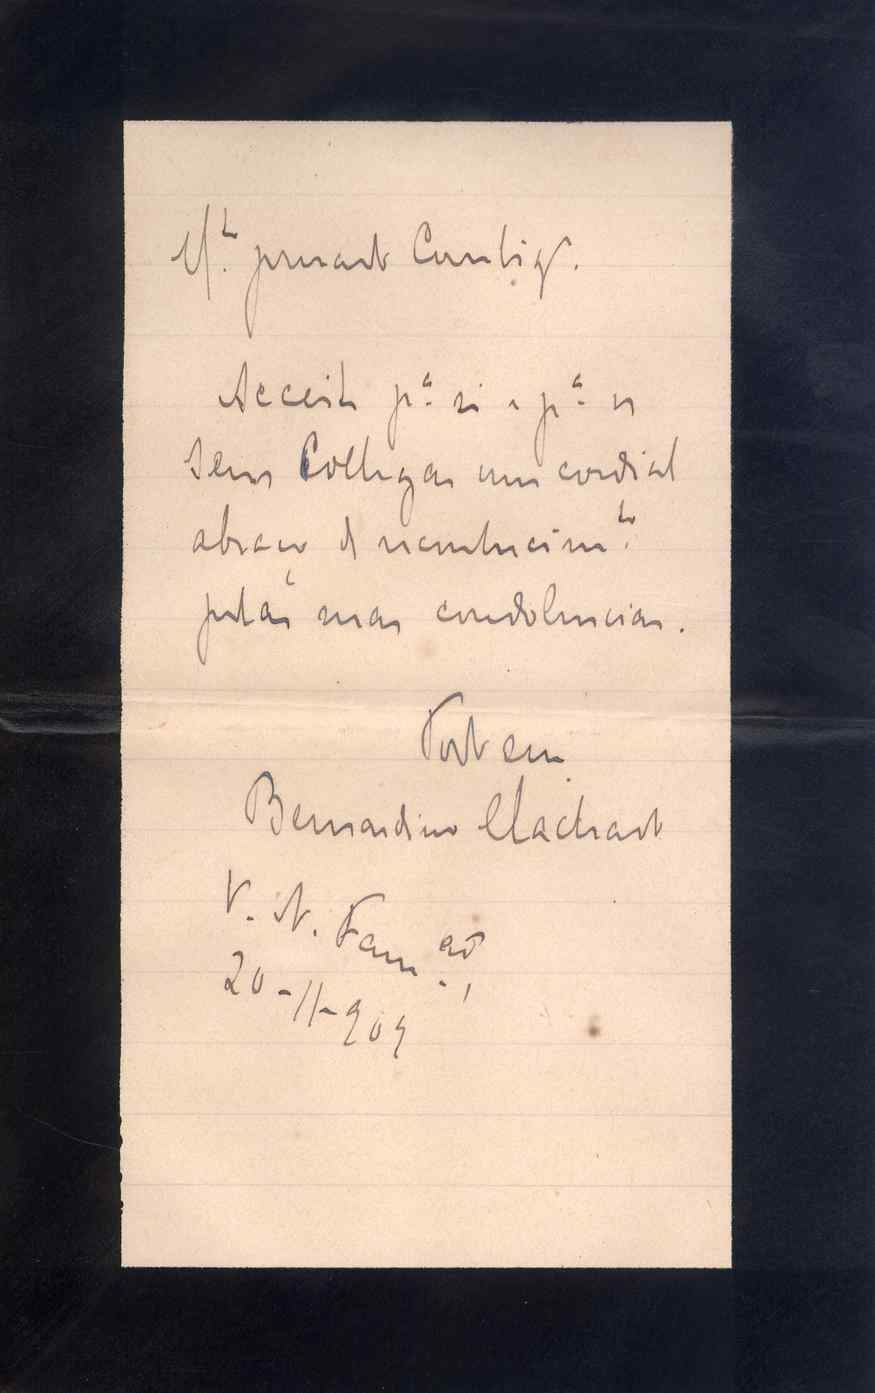 M.to presado Correlig.
Acceite p.a si e p.a os
seus Collegas um cordial
abraço de reconhecim.to
pelas suas condolencias.
Todo seu
Bernardino Machado
V. N. Fam.ao,
20-11-909